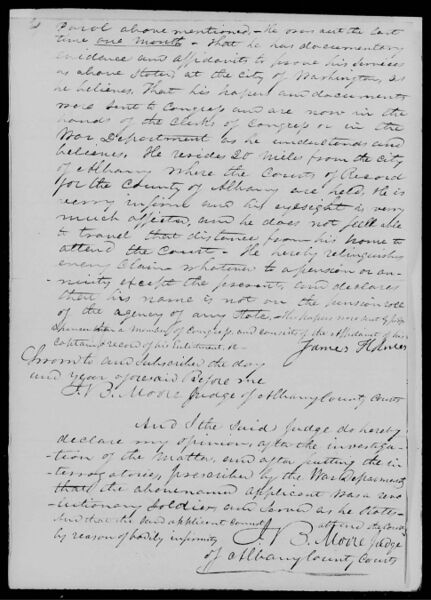 Parol above mentioned - He was out the last
time one month - That he has documentary
evidence and affidavits to prove his services
as above stated at the City of Washington, as
he believes. That his papers and documents
were sent to Congress and are now in the
hands of the Clerks of Congress or in the
War Department as he understands and
believes. He resides 20 Miles from the City
of Albany where the Courts of Record
for the County of Albany are held. He is
very infirm and his eyesight is very
much affected, and he does not feel able
to travel that distance from his home to
attend the Court - He hereby relinquishes
every Claim whatever to a pension or an-
-nuity except the present, and declares
that his name is not on the pension role
of the agency of any State. His papers were sent
a member of Congress, and consists of the Affidavit of his
captain & record of his enlistment &c
James Holmes
Sworn to and subscribed the day
and year aforesaid Before me
J. B. Moore Judge of Albany County Courts
And I the said Judge do hereby
declare my opinion, after the investiga-
-tion of the Matter, and after putting the in-
-terrogatories prescribed by the War Department
that the abovenamed applicant was a revo-
-lutionary Soldier, and served as he states
And that the said applicant cannot attend the Court
by reason of bodily infirmity
J. B. Moore Judge
of Albany County Courts